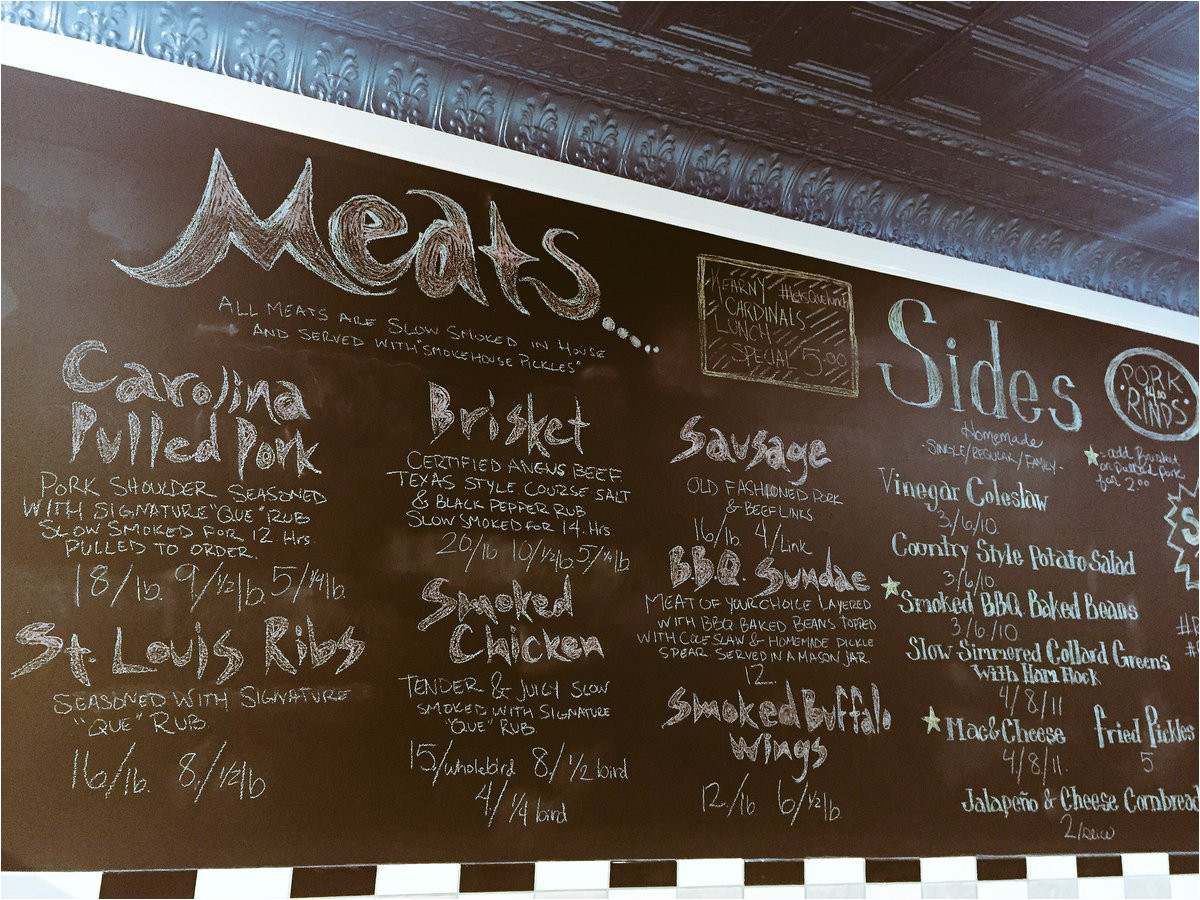 Meats.....
ALL MEATS ARE SLOW SMOKED IN HOUSE
AND SERVED WITH "SMOKEHOUSE PICKLES"
Carolina
Pulled Pork
PORK SHOULDER SEASONED
WITH SIGNATURE "QUE" RUB
SLOW SMOKED FOR 12 Hrs.
PULLED TO ORDER.
18/lb. 9/1/2lb. 5/1/4lb.
St. Louis Ribs
SEASONED WITH SIGNATURE
"QUE" RUB
16/lb. 8/1/2lb
Brisket
CERTIFIED ANGUS BEEF
TEXAS STYLE COURSE SALT
& BLACK PEPPER RUB
SLOW SMOKED FOR 14 Hrs
20/lb 10/1/2lb. 5/1/4lb.
Smoked
Chicken
TENDER & JUICY SLOW
SMOKED WITH SIGNATURE
"QUE" RUB
15/wholebird 8/1/2 bird
4/1/4 bird
KEARNY
CARDINALS
LUNCH
SPECIAL 5.00
Sausage
OLD FASHIONED PORK
& BEEF LINKS
16/lb. 4/Link
BBQ. Sundae
MEAT OF YOUR CHOICE LAYERED
WITH BBQ BAKED BEANS TOPPED
WITH COLESLAW & HOMEMADE PICKLE
SPEAR. SERVED IN A MASON JAR.
12.
Smoked Buffalo
Wings
12/lb 6/1/2lb.
Sides
Homemade
-SINGLE/REGULAR/FAMILY-
Vinegar Coleslaw
3/6/10.
Country Style Potato Salad
3/6/10.
Smoked BBQ Baked Beans
3/6/10
Slow Simmered Collard Greens
With Ham Hock
4/8/11
Mac&Cheese
4/8/11.
Fried Pickles
5
Jalapeño & Cheese Cornbread
2/
PORK
RINDS
add Brisket
or Pulled Pork
for 2.00